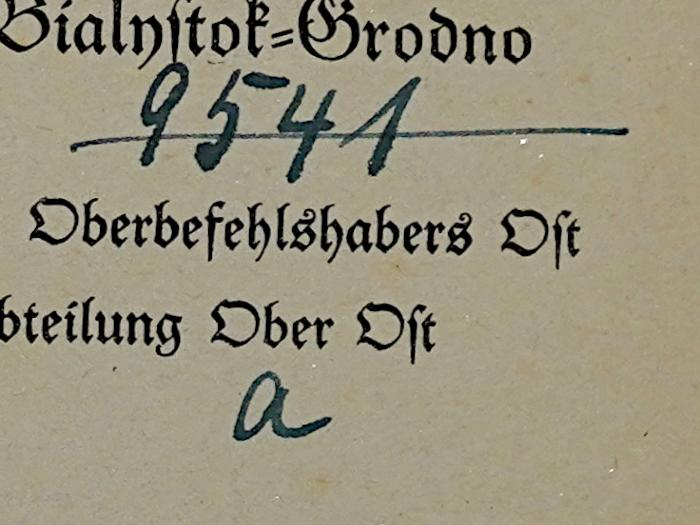 Bialystok-Grodno
9541
Oberbefehlshabers Ost
bteilung Ober Ost
a